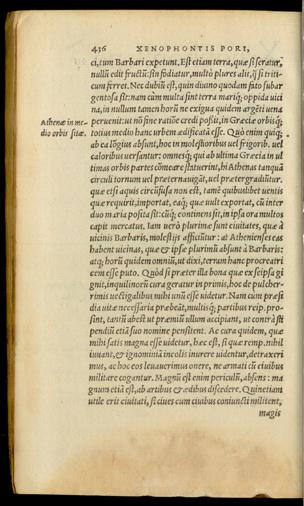 436 XENOPHONTIS PORI,
ci, tum Barbari expetunt. Est etiam terra, quæ si seratur,
nullū edit fructū: sin fodiatur, multò plures alit, q̃ si triti-
cum ferret. Nec dubiū est, quin diuino quodam fato subar
gentosa sit: nam cùm multa sint terra mariq; oppida uici
na, in nullum tamen horū ne exigua quidem argēti uena
Athenæ in me-
dio orbis sitæ.
peruenit: nō sine ratiōe credi possit, in Græciæ orbisq;
totius medio hanc urbem ædificatā esse. Quò enim quiq;
ab ea lōgius absunt, hoc in molestioribus uel frigorib. uel
caloribus uersantur: omnesq; qui ab ultima Græcia in ul
timas orbis partes cōmeare statuerint, hi Athenas tanquā
circuli tornum uel præternauigāt, uel prætergrediūtur.
quæ etsi aquis circūfusa non est, tamē quibuslibet uentis
quæ requirit, importat, eaq; quæ uult exportat, cū inter
duo maria posita sit: cūq; continens sit, in ipsa ora multos
capit mercatus. Iam uerò plurimæ sunt ciuitates, quæ à
uicinis Barbaris, molestijs afficiūtur: at Athenienses eas
habent uicinas, quæ & ipsæ plurimū absunt à Barbaris:
atq; horū quidem omniū, ut dixi, terram hanc procreatri
cem esse puto. Quòd si præter illa bona quæ ex seipsa gi
gnit, inquilinorū cura geratur in primis, hoc de pulcher-
rimis uectigalibus mihi unū esse uidetur. Nam cum præsi
dia uitæ necessaria præbeāt, multisq; partibus reip. pro-
sint, tantū abest ut præmiū ullum accipiant, ut contrà sti
pendiū etiā suo nomine pensitent. Ac cura quidem, quæ
mihi satis magna esse uidetur, hæc est, si quæ remp. nihil
iuuant, & ignominiā incolis inurere uidentur, detraxeri
mus, ac hoc eos leuauerimus onere, ne armati cū ciuibus
militare cogantur. Magnū est enim periculū, absens: ma
gnum etiā est, ab artibus & ædibus discedere. Quinetiam
utile erit ciuitati, si ciues cum ciuibus coniuncti militent,
magis